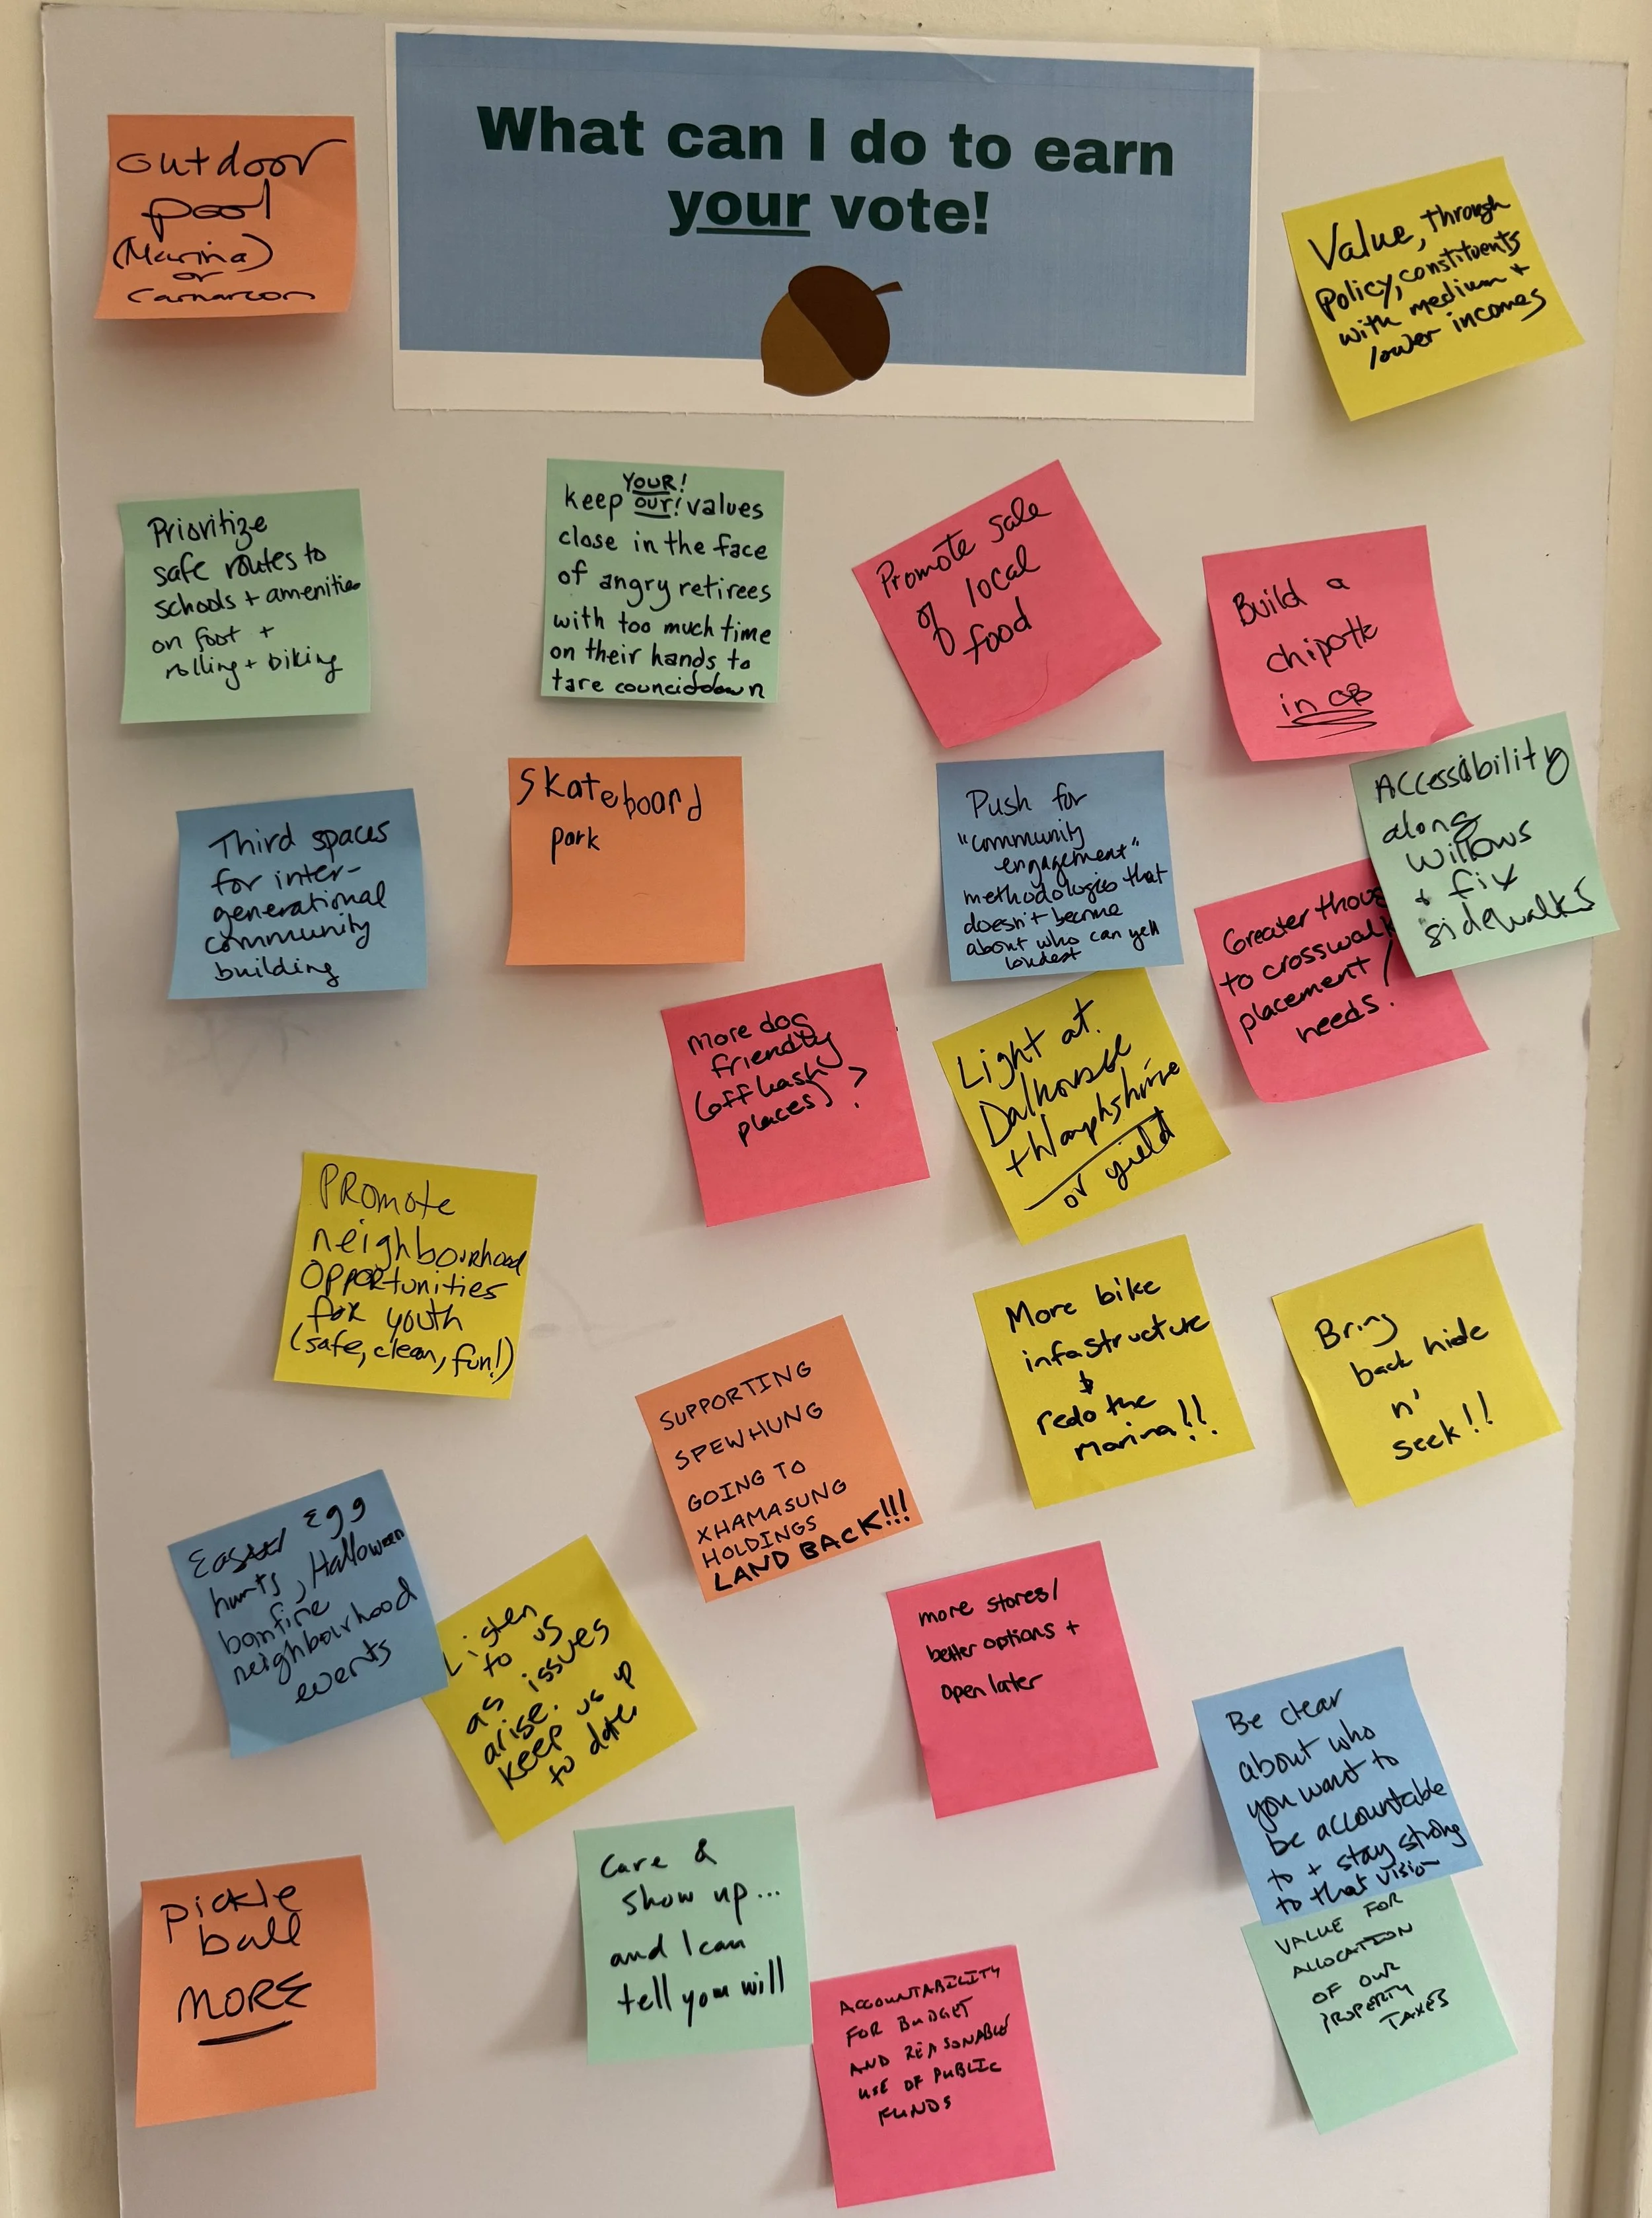 What can I do to earn
your vote!
outdoor
pool
(Marina)
or
Carnarvon
Value, through
policy, constituents
with medium +
lower incomes
Prioritize
safe routes to
schools + amenities
on foot +
rolling + biking
YOUR!
keep our! values
close in the face
of angry retirees
with too much time
on their hands to
tare council down
Promote sale
of local
food
Build a
chipotle
in OB
Third spaces
for inter-
generational
community
building
Skateboard
park
Push for
"community
engagement"
methodologies that
doesn't become
about who can yell
loudest
Accessibility
along
Willows
+ fix
sidewalks
Greater thoug
to crosswalk
placement /
needs!
More dog
friendly
(off leash
places) ?
Light at
Dalhousie
+ Hampshire
or yield
PROmote
neighbourhood
OPPORtunities
foR youth
(safe, clean, fun!)
SUPPORTING
SPEWHUNG
GOING TO
XHAMASUNG
HOLDINGS
LAND BACK!!!
More bike
infastructure
&
redo the
Marina!!
Bring
back hide
n'
seek!!
Easter Egg
hunts, Halloween
bonfire
neighbourhood
events
Listen
to us
as issues
arise.
Keep us up
to date
more stores/
better options +
open later
Be clear
about who
you want to
be accountable
to + stay strong
to that vision
VALUE FOR
ALLOCATION
OF OUR
PROPERTY
TAXES
pickle
ball
MORE
Care &
show up...
and I can
tell you will
ACCOUNTABILITY
FOR BUDGET
AND REASONABLE
USE OF PUBLIC
FUNDS